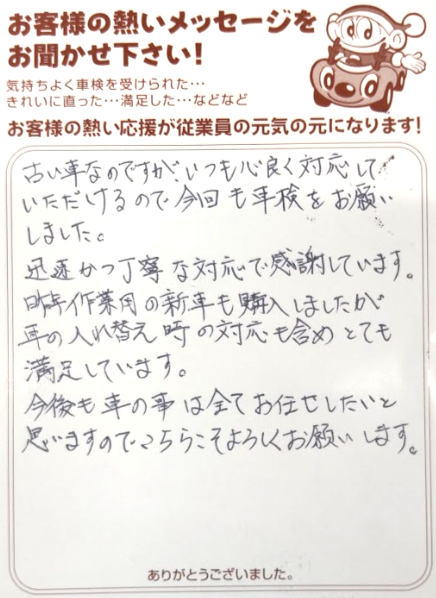 お客様の熱いメッセージを
お聞かせ下さい!
気持ちよく車検を受けられた…
きれいに直った…満足した…などなど
お客様の熱い応援が従業員の元気の元になります!
古い車なのですが、いつも心良く対応して
いただけるので今回も車検をお願い
しました。
迅速かつ丁寧な対応で感謝しています。
昨年作業用の新車も購入しましたが
車の入れ替え時の対応も含めとても
満足しています。
今後も車の事は全てお任せしたいと
思いますのでこちらこそよろしくお願いします。
ありがとうございました。